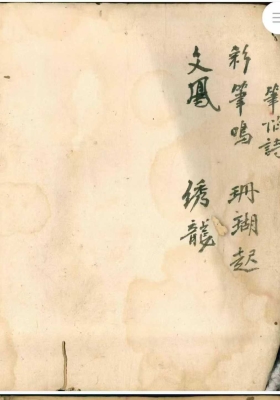 筆 詩
彩筆鳴 珊瑚起
文鳳 绣龍